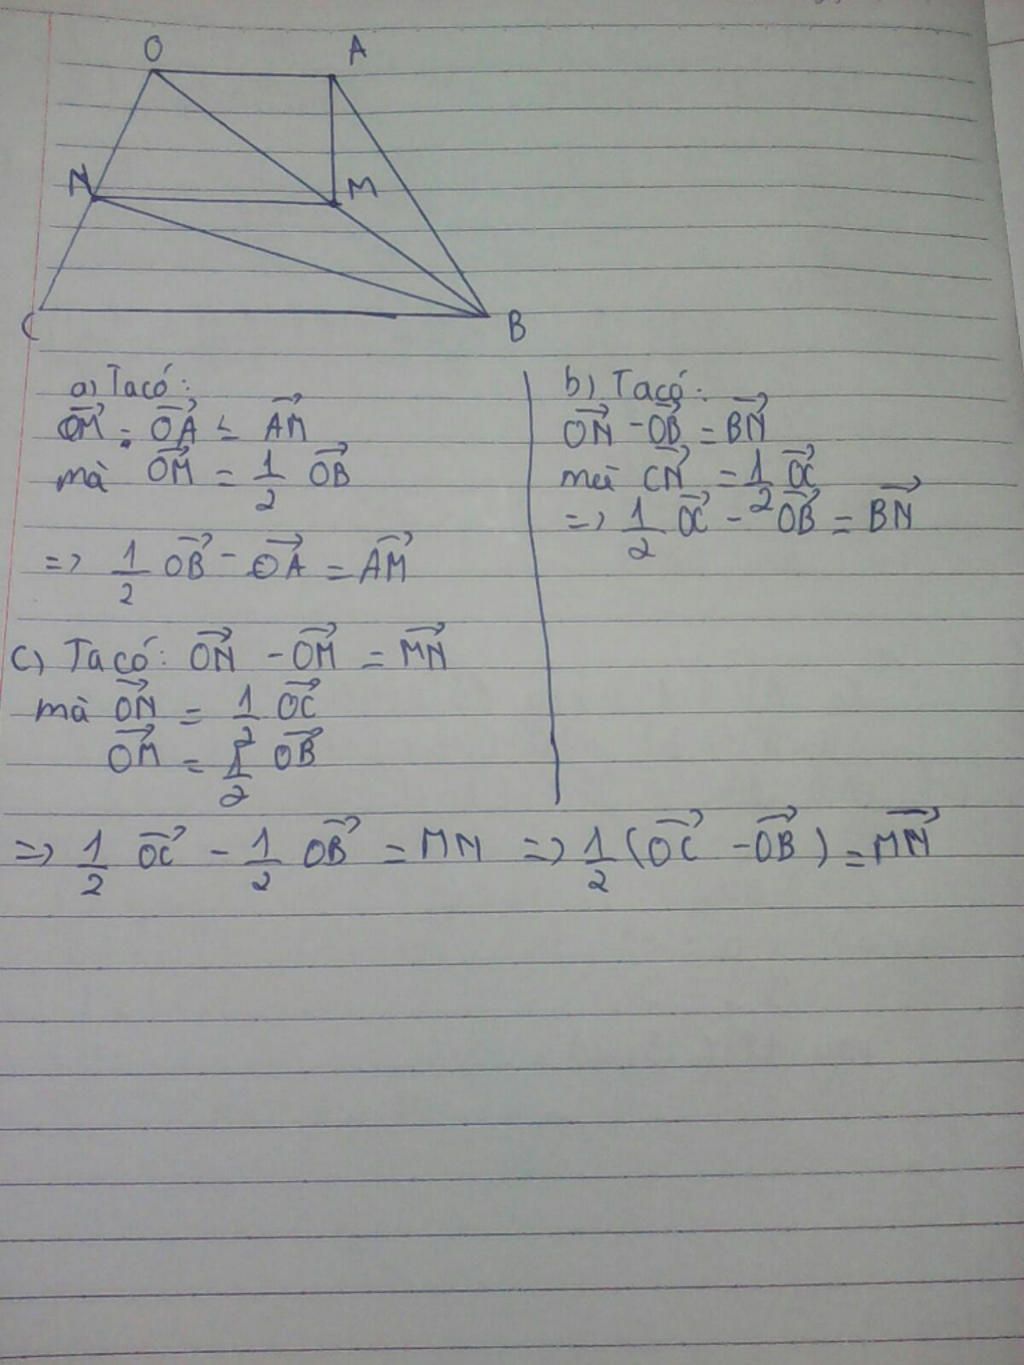 O A
N M
C B
a) Ta có:
$\overrightarrow{OM}$ - $\overrightarrow{OA}$ = $\overrightarrow{AM}$
mà $\overrightarrow{OM}$ = $\frac{1}{2}$ $\overrightarrow{OB}$
=> $\frac{1}{2}$ $\overrightarrow{OB}$ - $\overrightarrow{OA}$ = $\overrightarrow{AM}$
b) Ta có:
$\overrightarrow{ON}$ - $\overrightarrow{OB}$ = $\overrightarrow{BN}$
mà $\overrightarrow{CN}$ = $\frac{1}{2}$ $\overrightarrow{OC}$
=> $\frac{1}{2}$ $\overrightarrow{OC}$ - $\overrightarrow{OB}$ = $\overrightarrow{BN}$
c) Ta có: $\overrightarrow{ON}$ - $\overrightarrow{OM}$ = $\overrightarrow{MN}$
mà $\overrightarrow{ON}$ = $\frac{1}{2}$ $\overrightarrow{OC}$
$\overrightarrow{OM}$ = $\frac{1}{2}$ $\overrightarrow{OB}$
=> $\frac{1}{2}$ $\overrightarrow{OC}$ - $\frac{1}{2}$ $\overrightarrow{OB}$ = MN => $\frac{1}{2}$ ($\overrightarrow{OC}$ - $\overrightarrow{OB}$) = $\overrightarrow{MN}$